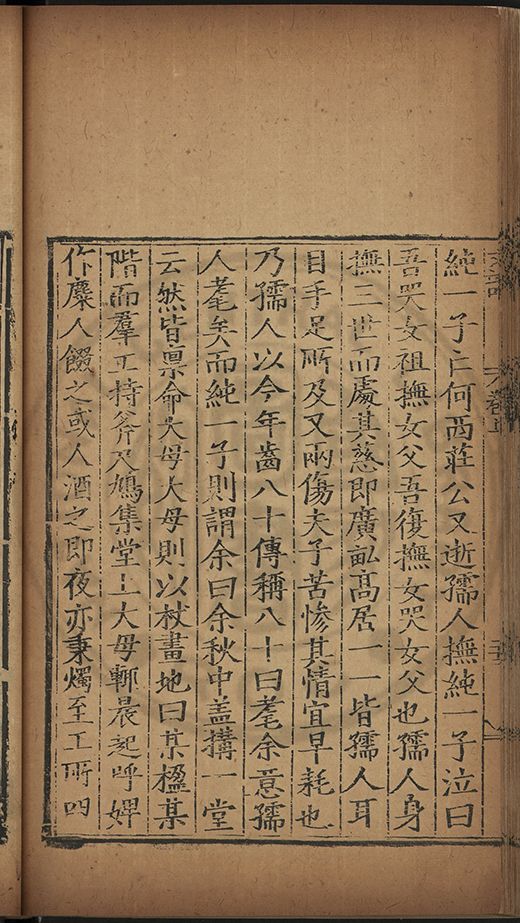 純一子亡何西莊公又逝孺人撫純一子泣曰
吾哭女祖撫女父吾復撫女哭女父也孺人身
撫三世而處其慈即廣畆高居一一皆孺人耳
目手足所及又兩傷夫子苦慘其情宜早耗也
乃孺人以今年齒八十傳稱八十曰耄余意孺
人耄矣而純一子則謂余曰余秋中盖搆一堂
云然皆禀命大母大母則以杖畫地曰某楹某
階而羣工持斧乃鳩集堂上大母輙晨起呼婢
作糜人餟之或人酒之即夜亦秉燭至工所四